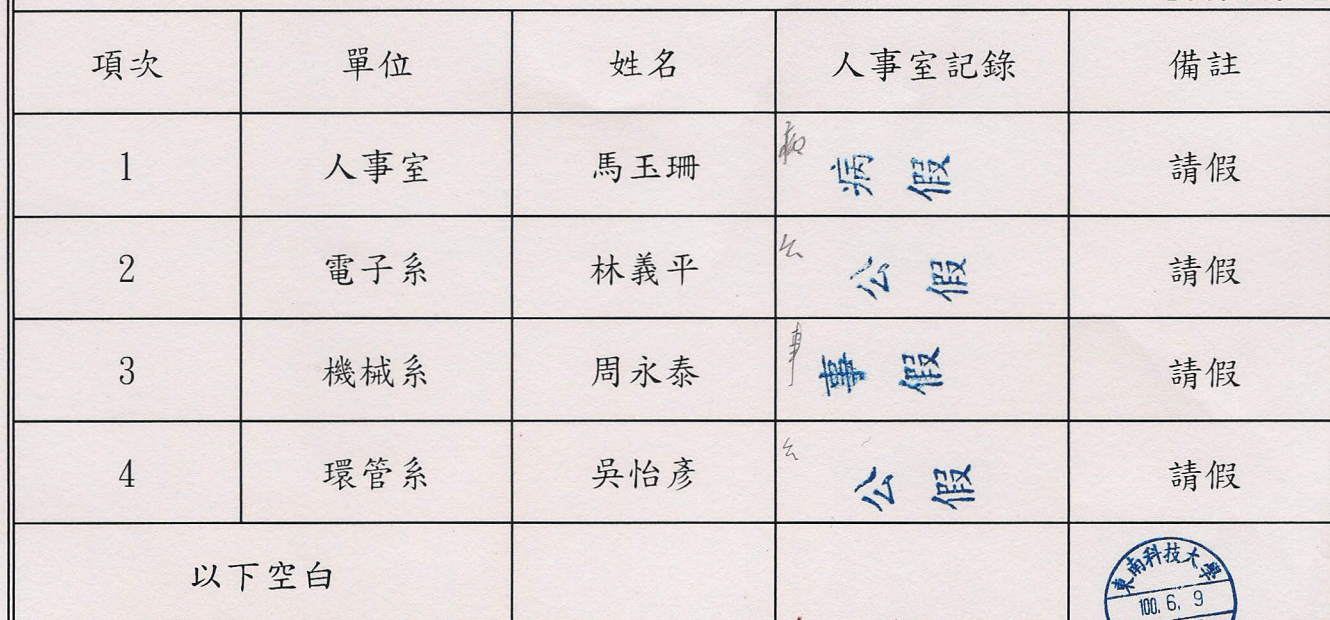 項次 單位 姓名 人事室記錄 備註
病
1 人事室 馬玉珊 病假 請假
公
2 電子系 林義平 公假 請假
事
3 機械系 周永泰 事假 請假
公
4 環管系 吳怡彥 公假 請假
以下空白
東南科技大學
100. 6. 9